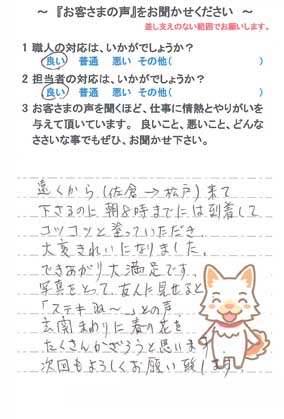 ～『お客さまの声』をお聞かせください～
差し支えのない範囲でお願いします。
1 職人の対応は、いかがでしょうか？
良い 普通 悪い その他( )
2 担当者の対応は、いかがでしょうか？
良い 普通 悪い その他( )
3 お客さまの声を聞くほど、仕事に情熱とやりがいを
与えて頂いています。 良いこと、悪いこと、どんな
ささいな事でもぜひ、お聞かせ下さい。
遠くから(佐倉→松戸)来て
下さるのに朝8時までには到着して
コツコツと塗っていただき、
大変きれいになりました。
できあがり大満足です。
写真をとって、友人に見せると
「ステキね～」との声。
玄関まわりに春の花を
たくさんかざろうと思います
次回もよろしくお願い致します。